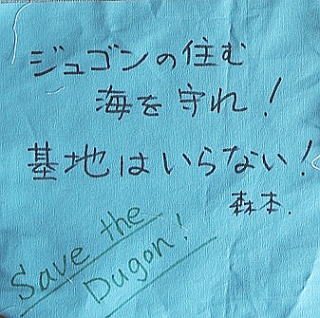 ジュゴンの住む
海を守れ!
基地はいらない!
森本.
Save the
Dugon!